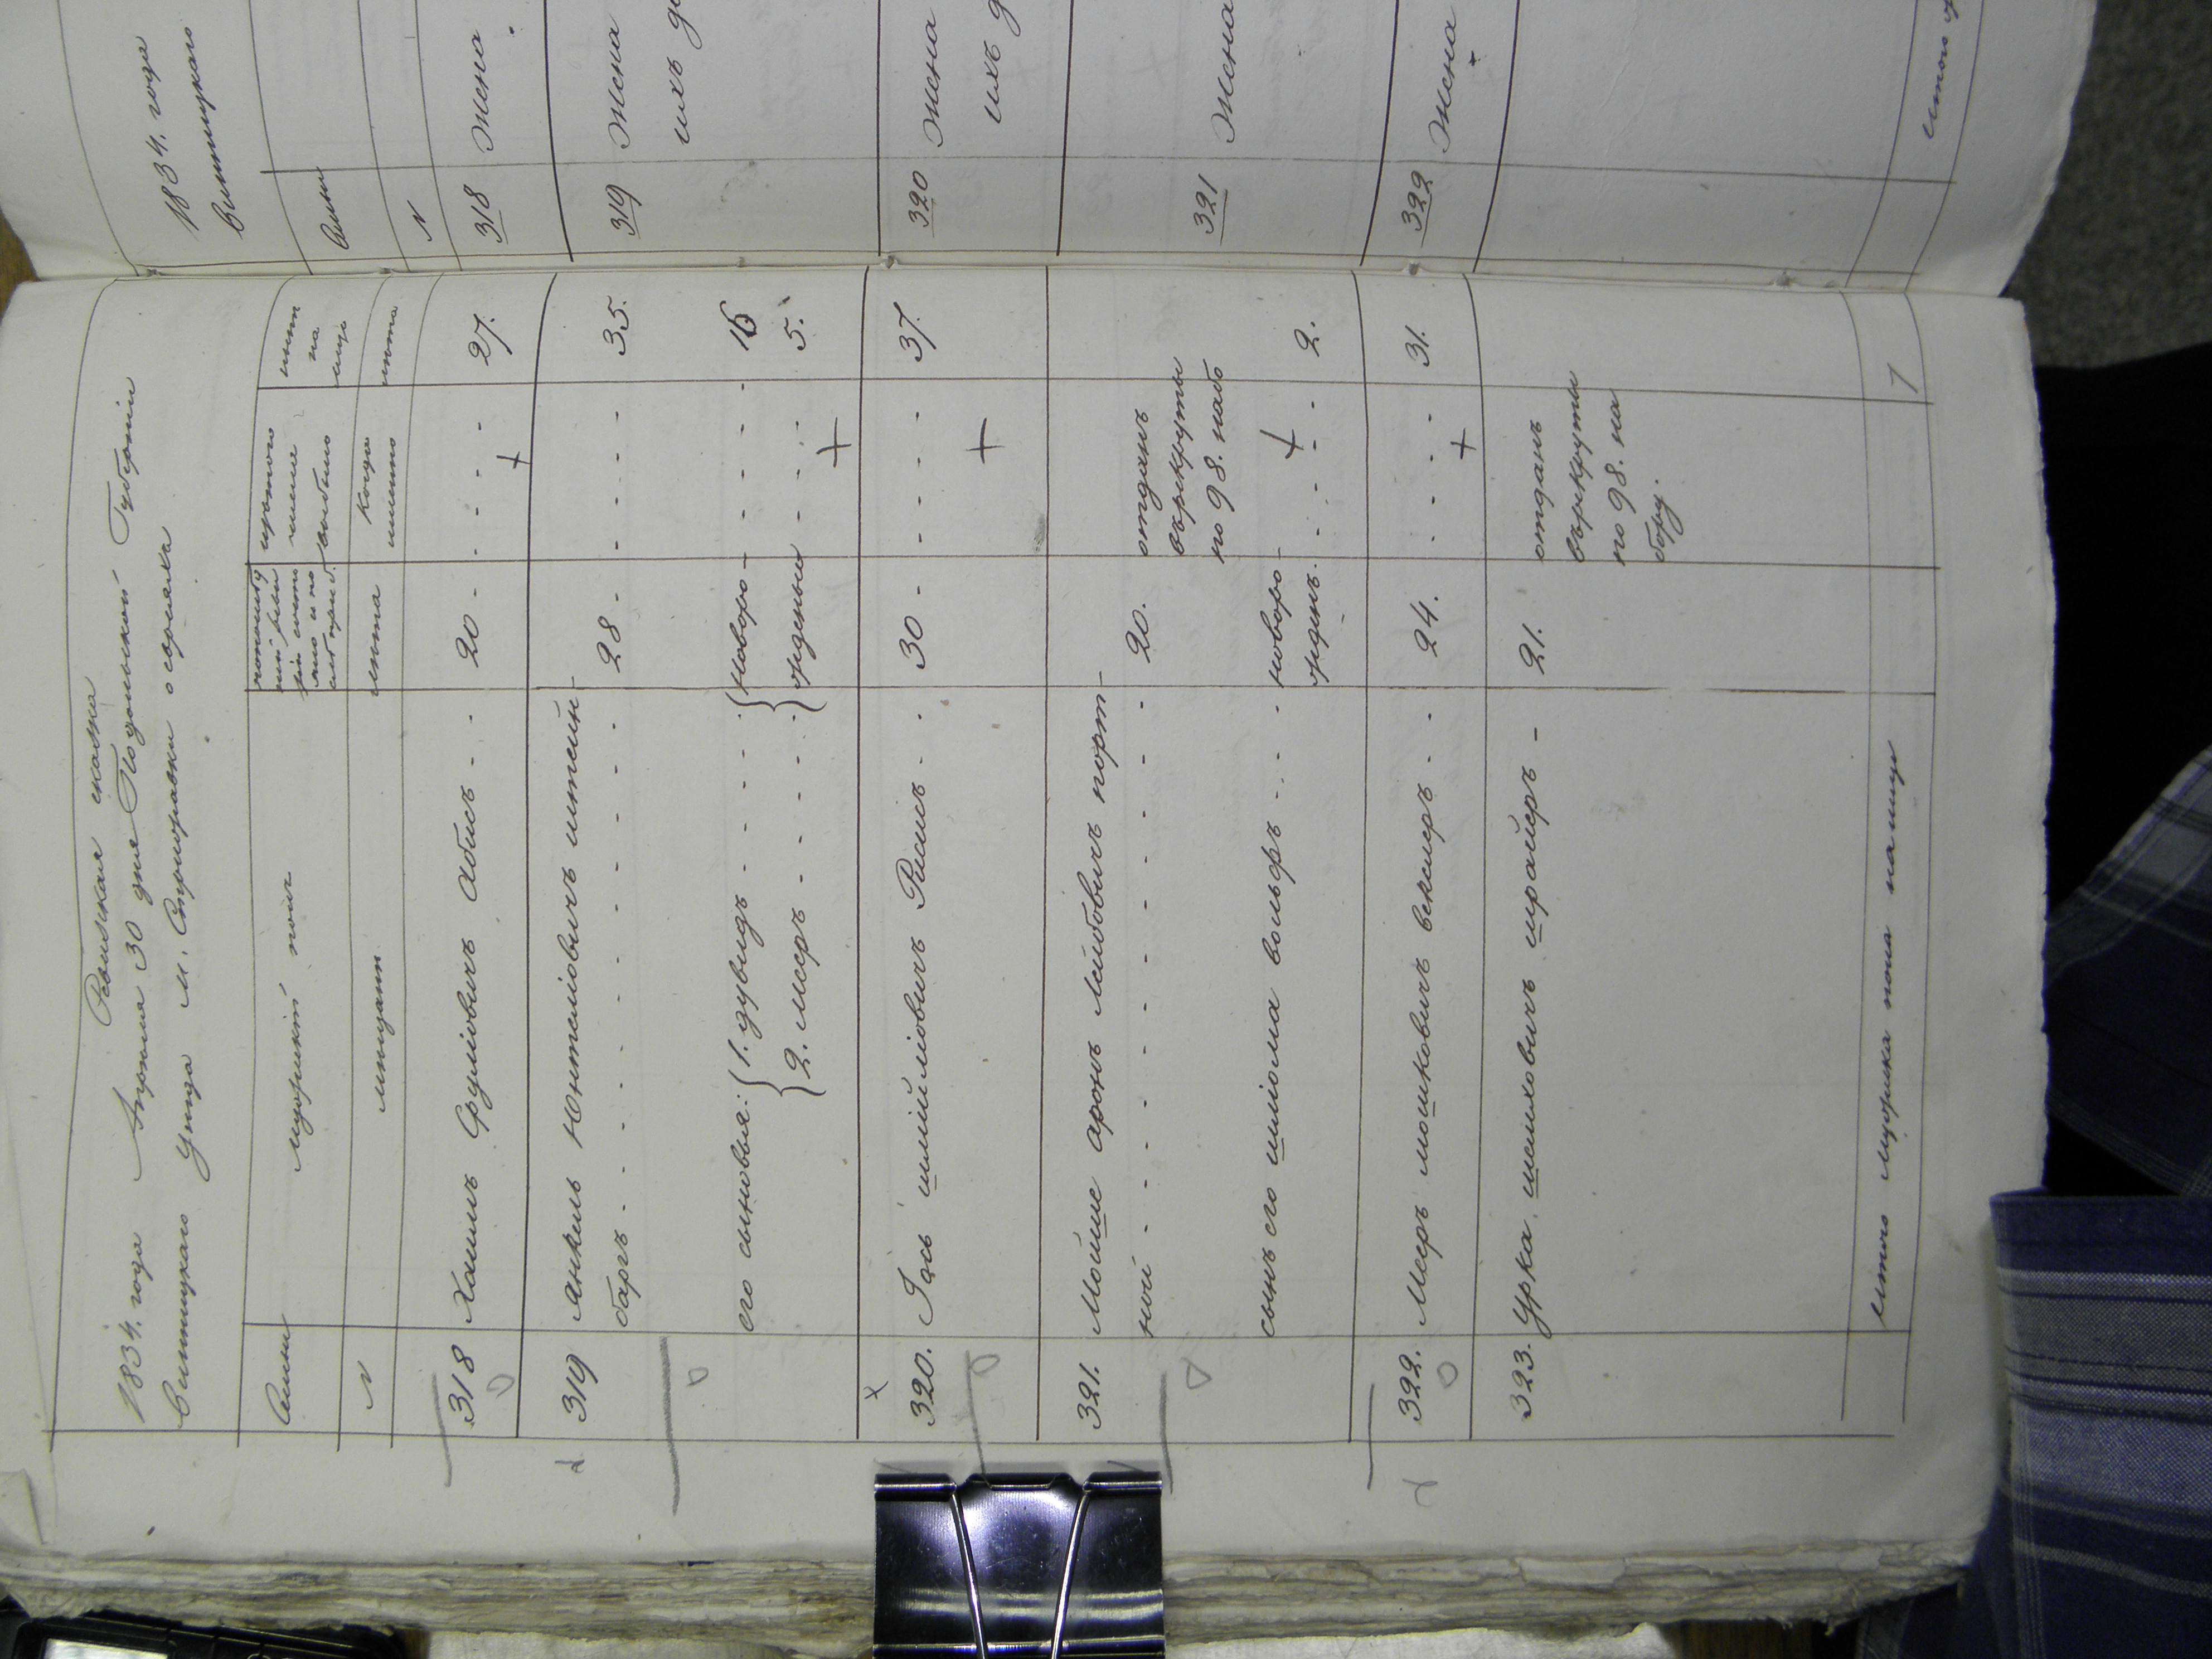 Ревижская сказка
1834. года Апреля 30 дня Подольской Губернии
Винницкаго Уезда м. Стрижавки о евреяхъ
Семьи
мужескій полъ
изтого
числа
выбыло
ныне
на
лицо
N
мещане
лета
когда
имянно
лета
318 Хаимъ Срулiовичъ Абисъ - - 20 - - - - 27.
319 Янкель Юнтелiовичъ штейн-
баргъ - - - - 28 - - - - 35.
его сыновья: 1. дувидъ - - - - новоро- - - - 16
2. Мееръ - - - - жденные - - - 5.
320. Iось шмiйлiовичъ Рисисъ - - 30 - - - - 37.
321. Мойше аронъ Лейбовичъ порт-
ной - - - - 20.
отданъ
върекруты
по 98. набо
сынъ его шлiома вольфъ - - - новоро-
жденъ. - - - 2.
322. Мееръ мошковичъ векслеръ - - 24. - - - 31.
323. Урка шеилховичъ шрайеръ - 21.
отданъ
върекруты
по 98. на
бору.
Итого мужска пола налицо 7
1834. года
Винницкаго
Семьи
N
318 Жена
319 Жена
ихъ д
320 Жена
ихъ д
321 Жена
322 Жена
Итого